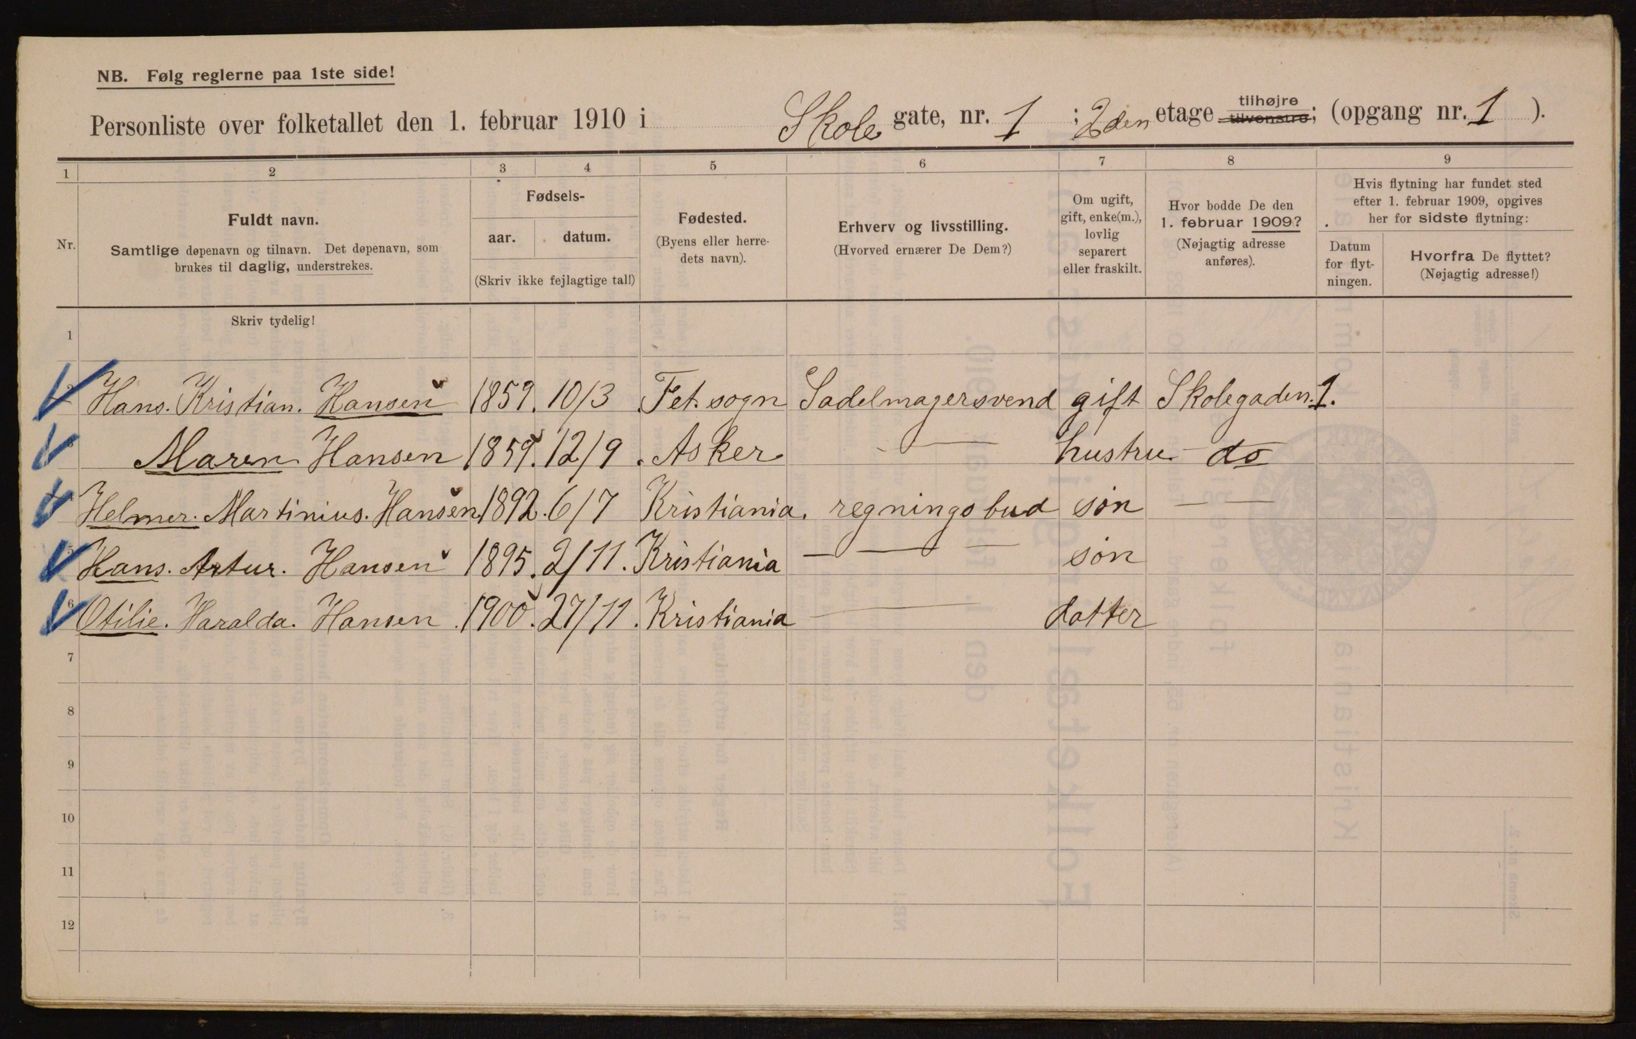 NB. Følg reglerne paa 1ste side!
Personliste over folketallet den 1. februar 1910 i Skole gate, nr. 1 ; 2den etage tilhøjre tilvenstre; (opgang nr. 1 ).
1 2 3 4 5 6 7 8 9
Nr.
Fuldt navn.
Samtlige døpenavn og tilnavn. Det døpenavn, som
brukes til daglig, understrekes.
Fødsels-
aar. datum.
(Skriv ikke fejlagtige tal!)
Fødested.
(Byens eller herre-
dets navn).
Erhverv og livsstilling.
(Hvorved ernærer De Dem?)
Om ugift,
gift, enke(m.),
lovlig
separert
eller fraskilt.
Hvor bodde De den
1. februar 1909?
(Nøjagtig adresse
anføres).
Hvis flytning har fundet sted
efter 1. februar 1909, opgives
her for sidste flytning:
Datum
for flyt-
ningen.
Hvorfra De flyttet?
(Nøjagtig adresse!)
Skriv tydelig!
1
Hans. Kristian. Hansen 1859. 10/3 Fet. sogn Sadelmagersvend gift Skolegaden. 1.
Maren Hansen 1859. 12/9 . Asker — hustru do
Helmer. Martinius. Hansen 1892. 6/7 Kristiania. regningsbud søn — —
Hans. Artur. Hansen 1895. 2/11. Kristiania — — — søn
6 Otilie. Haralda. Hansen. 1900. 27/11. Kristiania — dotter
7
8
9
10
11
12